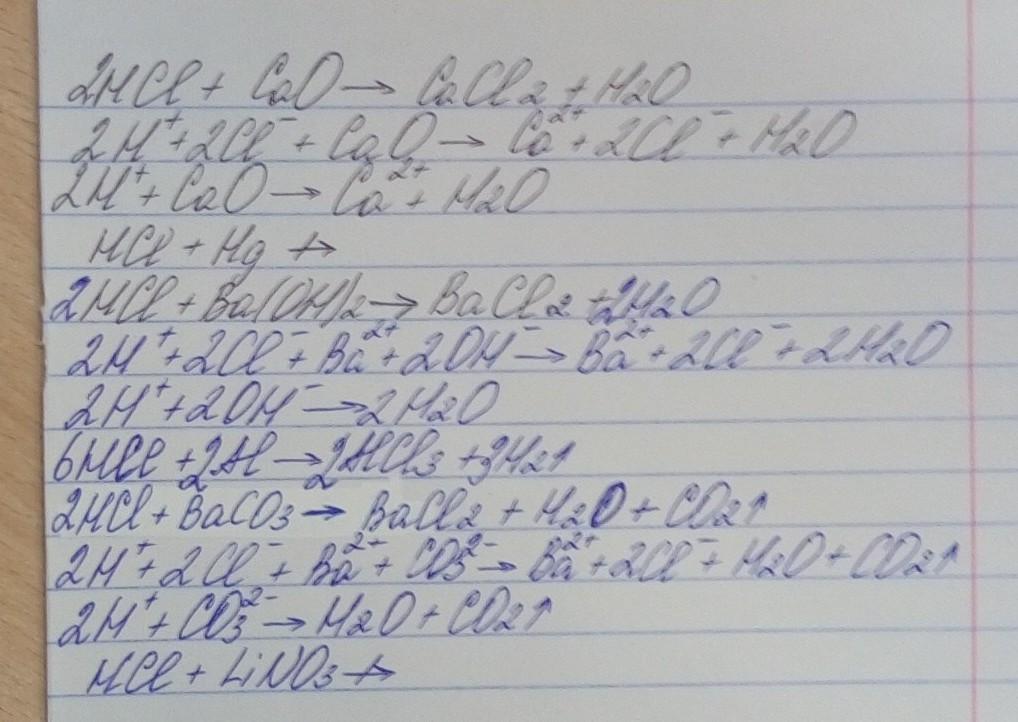 2HCl + CaO → CaCl2 + H2O
2H⁺ + 2Cl⁻ + CaO → Ca²⁺ + 2Cl⁻ + H2O
2H⁺ + CaO → Ca²⁺ + H2O
HCl + Hg ↛
2HCl + Ba(OH)2 → BaCl2 + 2H2O
2H⁺ + 2Cl⁻ + Ba²⁺ + 2OH⁻ → Ba²⁺ + 2Cl⁻ + 2H2O
2H⁺ + 2OH⁻ → 2H2O
6HCl + 2Al → 2AlCl3 + 3H2↑
2HCl + BaCO3 → BaCl2 + H2O + CO2↑
2H⁺ + 2Cl⁻ + Ba²⁺ + CO3²⁻ → Ba²⁺ + 2Cl⁻ + H2O + CO2↑
2H⁺ + CO3²⁻ → H2O + CO2↑
HCl + LiNO3 ↛